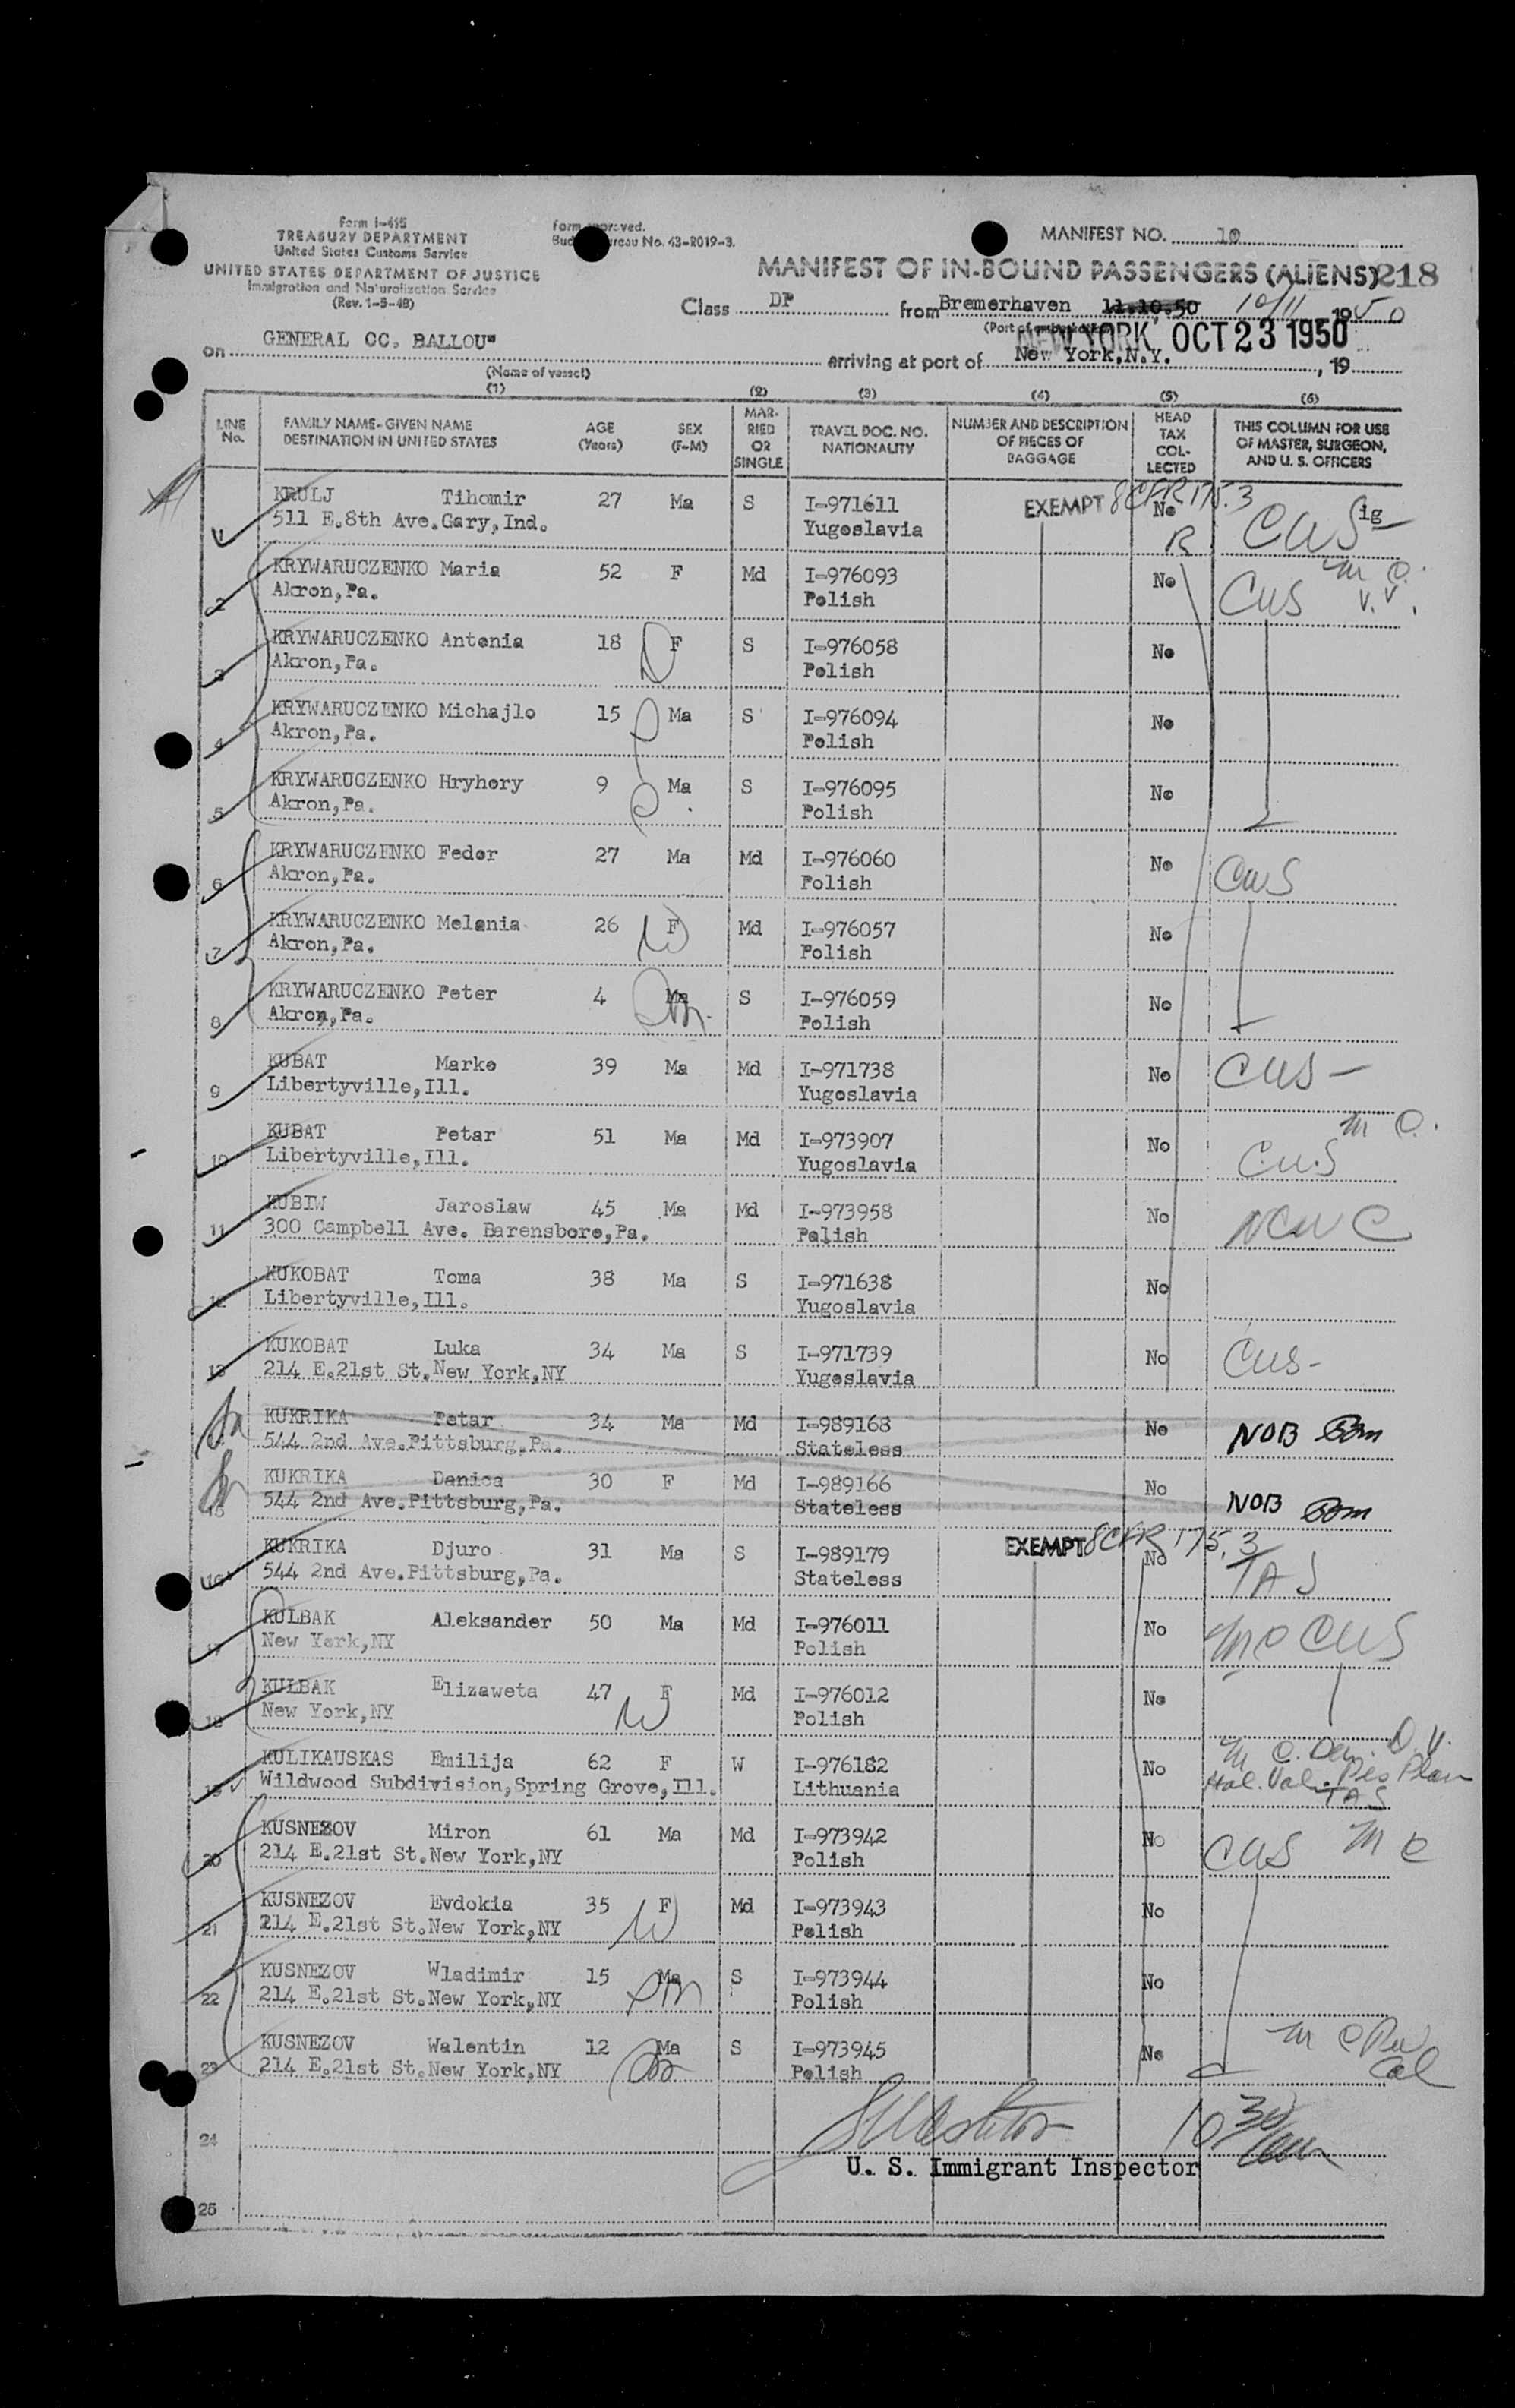 Form I-415
TREASURY DEPARTMENT
United States Customs Service
UNITED STATES DEPARTMENT OF JUSTICE
Immigration and Naturalization Service
(Rev. 1-5-49)
Form approved.
Budget Bureau No. 43-R019-3.
MANIFEST NO. 10
MANIFEST OF IN-BOUND PASSENGERS (ALIENS) 218
Class DP from Bremerhaven 11.10.50 10/11 1950
(Port of embarkation)
NEW YORK, OCT 23 1950
on GENERAL CC. BALLOU" arriving at port of New York,N.Y. , 19
(Name of vessel)
(1) (2) (3) (4) (5) (6)
LINE No. FAMILY NAME-GIVEN NAME DESTINATION IN UNITED STATES AGE (Years) SEX (F-M) MARRIED OR SINGLE TRAVEL DOC. NO. NATIONALITY NUMBER AND DESCRIPTION OF PIECES OF BAGGAGE HEAD TAX COLLECTED THIS COLUMN FOR USE OF MASTER, SURGEON, AND U. S. OFFICERS
1 KRULJ Tihomir 27 Ma S I-971611 EXEMPT 8CFR 175.3 No CWS ig
511 E.8th Ave.Gary,Ind. Yugoslavia R
2 KRYWARUCZENKO Maria 52 F Md I-976093 No CWS M C. V.V.
Akron,Pa. Polish
3 KRYWARUCZENKO Antonia 18 F S I-976058 No
Akron,Pa. Polish
4 KRYWARUCZENKO Michajlo 15 Ma S I-976094 No
Akron,Pa. Polish
5 KRYWARUCZENKO Hryhory 9 Ma S I-976095 No
Akron,Pa. Polish
6 KRYWARUCZENKO Fedor 27 Ma Md I-976060 No CWS
Akron,Pa. Polish
7 KRYWARUCZENKO Melania 26 F Md I-976057 No
Akron,Pa. Polish
8 KRYWARUCZENKO Peter 4 Ma S I-976059 No
Akron,Pa. Polish
9 KUBAT Marko 39 Ma Md I-971738 No CWS -
Libertyville,Ill. Yugoslavia
10 KUBAT Petar 51 Ma Md I-973907 No M C. CWS
Libertyville,Ill. Yugoslavia
11 KUBIW Jaroslaw 45 Ma Md I-973958 No NCWC
300 Campbell Ave. Barensboro,Pa. Polish
12 KUKOBAT Toma 38 Ma S I-971638 No
Libertyville,Ill. Yugoslavia
13 KUKOBAT Luka 34 Ma S I-971739 No CWS-
214 E.21st St.New York,NY Yugoslavia
KUKRIKA Petar 34 Ma Md I-989168 No NOB
544 2nd Ave.Pittsburg,Pa. Stateless
15 KUKRIKA Danica 30 F Md I-989166 No NOB
544 2nd Ave.Pittsburg,Pa. Stateless
16 KUKRIKA Djuro 31 Ma S I-989179 EXEMPT 8CFR 175.3 No TAS
544 2nd Ave.Pittsburg,Pa. Stateless
17 KULBAK Aleksander 50 Ma Md I-976011 No MC CWS
New York,NY Polish
18 KULBAK Elizaweta 47 F Md I-976012 No
New York,NY Polish
19 KULIKAUSKAS Emilija 62 F W I-976182 No M C. D.V.
Wildwood Subdivision,Spring Grove,Ill. Lithuania TAS
20 KUSNEZOV Miron 61 Ma Md I-973942 No CWS M C
214 E.21st St.New York,NY Polish
21 KUSNEZOV Evdokia 35 F Md I-973943 No
214 E.21st St.New York,NY Polish
22 KUSNEZOV Wladimir 15 Ma S I-973944 No
214 E.21st St.New York,NY Polish
23 KUSNEZOV Walentin 12 Ma S I-973945 No M C
214 E.21st St.New York,NY Polish
24 10 30
U. S. Immigrant Inspector
25